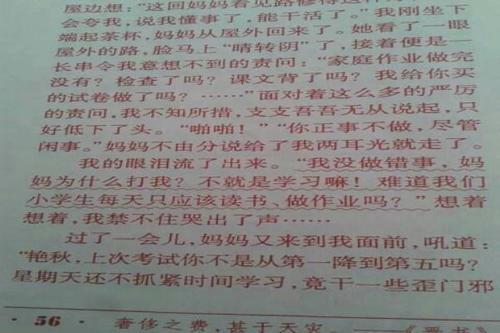 屋边想:"这回妈妈看见路修得这
会夸我,说我懂事了,能干活了。"我刚坐下
端起茶杯,妈妈从屋外回来了。她看了一眼
屋外的路,脸马上"晴转阴"了,接着便是一
长串令我意想不到的责问:"家庭作业做完
没有?检查了吗?课文背了吗?我给你买
的试卷做了吗?……"面对着这么多的严厉
的责问,我不知所措,支支吾吾无从说起,只
好低下了头。"啪啪!""你正事不做,尽管
闲事。"妈妈不由分说给了我两耳光就走了。
我的眼泪流了出来。"我没做错事,妈
妈为什么打我?不就是学习嘛!难道我们
小学生每天只应该读书、做作业吗?"想着
想着,我禁不住哭出了声……
过了一会儿,妈妈又来到我面前,吼道:
"艳秋,上次考试你不是从第一降到第五吗?
星期天还不抓紧时间学习,竟干一些歪门邪
· 56 · 奢侈之费,甚于天灾。——《晋书》